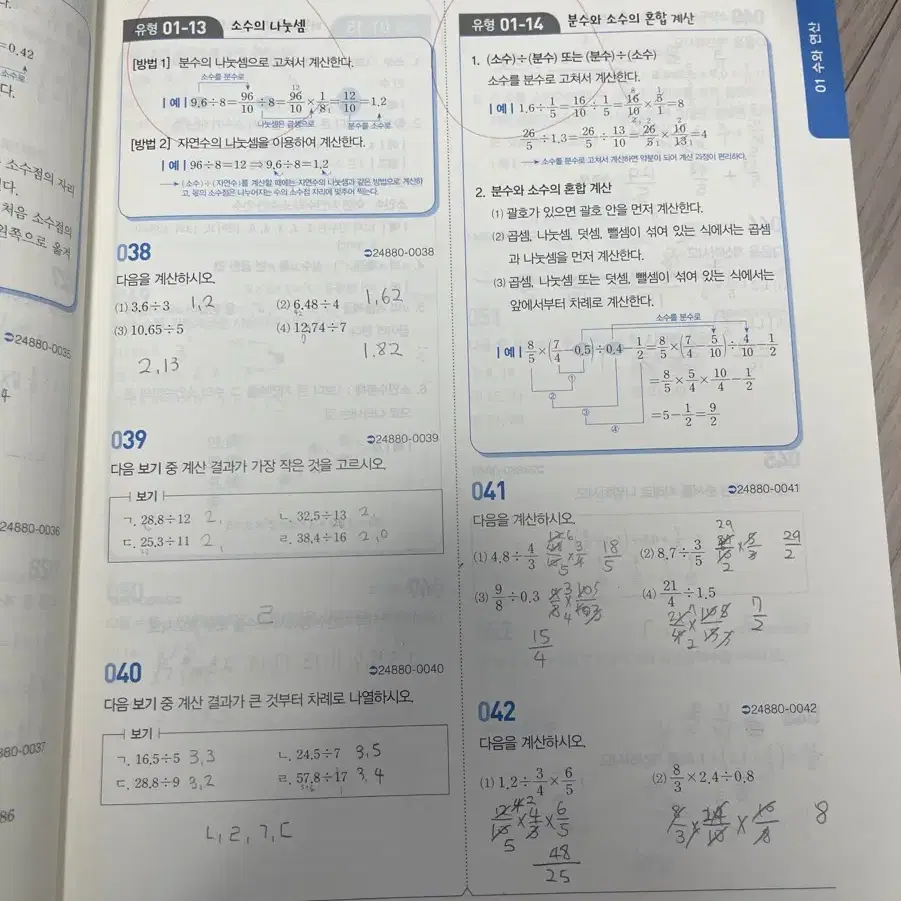 =0.42
소수로
다.
소수점의 자리
는다.
처음 소수점의
왼쪽으로 옮겨
24880-0035
4
24880-0036
880-0037
86
유형 01-13 소수의 나눗셈
[방법 1] 분수의 나눗셈으로 고쳐서 계산한다.
소수를 분수로
|예| 9.6÷8=96/10÷8=96/10×1/8=12/10=1.2
12
1
나눗셈은 곱셈으로
분수를 소수로
[방법 2] 자연수의 나눗셈을 이용하여 계산한다.
|예| 96÷8=12 ⇒ 9.6÷8=1.2
(소수)÷(자연수)를 계산할 때에는 자연수의 나눗셈과 같은 방법으로 계산하
고, 몫의 소수점은 나누어지는 수의 소수점 자리에 맞추어 찍는다.
038
24880-0038
다음을 계산하시오.
(1) 3.6÷3 1,2 (2) 6.48÷4 1,62
(3) 10.65÷5 (4) 12.74÷7
2,13 1.82
039
24880-0039
다음 보기 중 계산 결과가 가장 작은 것을 고르시오.
보기
ㄱ. 28.8÷12 2, ㄴ. 32.5÷13 2,
ㄷ. 25.3÷11 2, ㄹ. 38.4÷16 2,0
ㄷ
040
24880-0040
다음 보기 중 계산 결과가 큰 것부터 차례로 나열하시오.
보기
ㄱ. 16.5÷5 3,3 ㄴ. 24.5÷7 3,5
ㄷ. 28.8÷9 3,2 ㄹ. 57.8÷17 3,4
ㄴ,ㄹ,ㄱ,ㄷ
유형 01-14 분수와 소수의 혼합 계산
1. (소수)÷(분수) 또는 (분수)÷(소수)
소수를 분수로 고쳐서 계산한다.
|예| 1.6÷1/5=16/10÷1/5=16/10×5/1=8
26/5÷1.3=26/5÷13/10=26/5×10/13=4
소수를 분수로 고쳐서 계산하면 약분이 되어 계산 과정이 편리하다.
2. 분수와 소수의 혼합 계산
(1) 괄호가 있으면 괄호 안을 먼저 계산한다.
(2) 곱셈, 나눗셈, 덧셈, 뺄셈이 섞여 있는 식에서는 곱셈
과 나눗셈을 먼저 계산한다.
(3) 곱셈, 나눗셈 또는 덧셈, 뺄셈이 섞여 있는 식에서는
앞에서부터 차례로 계산한다.
소수를 분수로
|예| 8/5×(7/4-0.5)÷0.4-1/2=8/5×(7/4-5/10)÷4/10-1/2
①
②
③
④
=8/5×5/4×10/4-1/2
=5-1/2=9/2
041
24880-0041
다음을 계산하시오.
(1) 4.8÷4/3 18/5 (2) 8.7÷3/5 29/2
(3) 9/8÷0.3 (4) 21/4÷1.5 7/2
15/4
042
24880-0042
다음을 계산하시오.
(1) 1.2÷3/4×6/5 (2) 8/3×2.4÷0.8
12/10×4/3×6/5 8/3×24/10×10/8 8
48/25
01 수와 연산